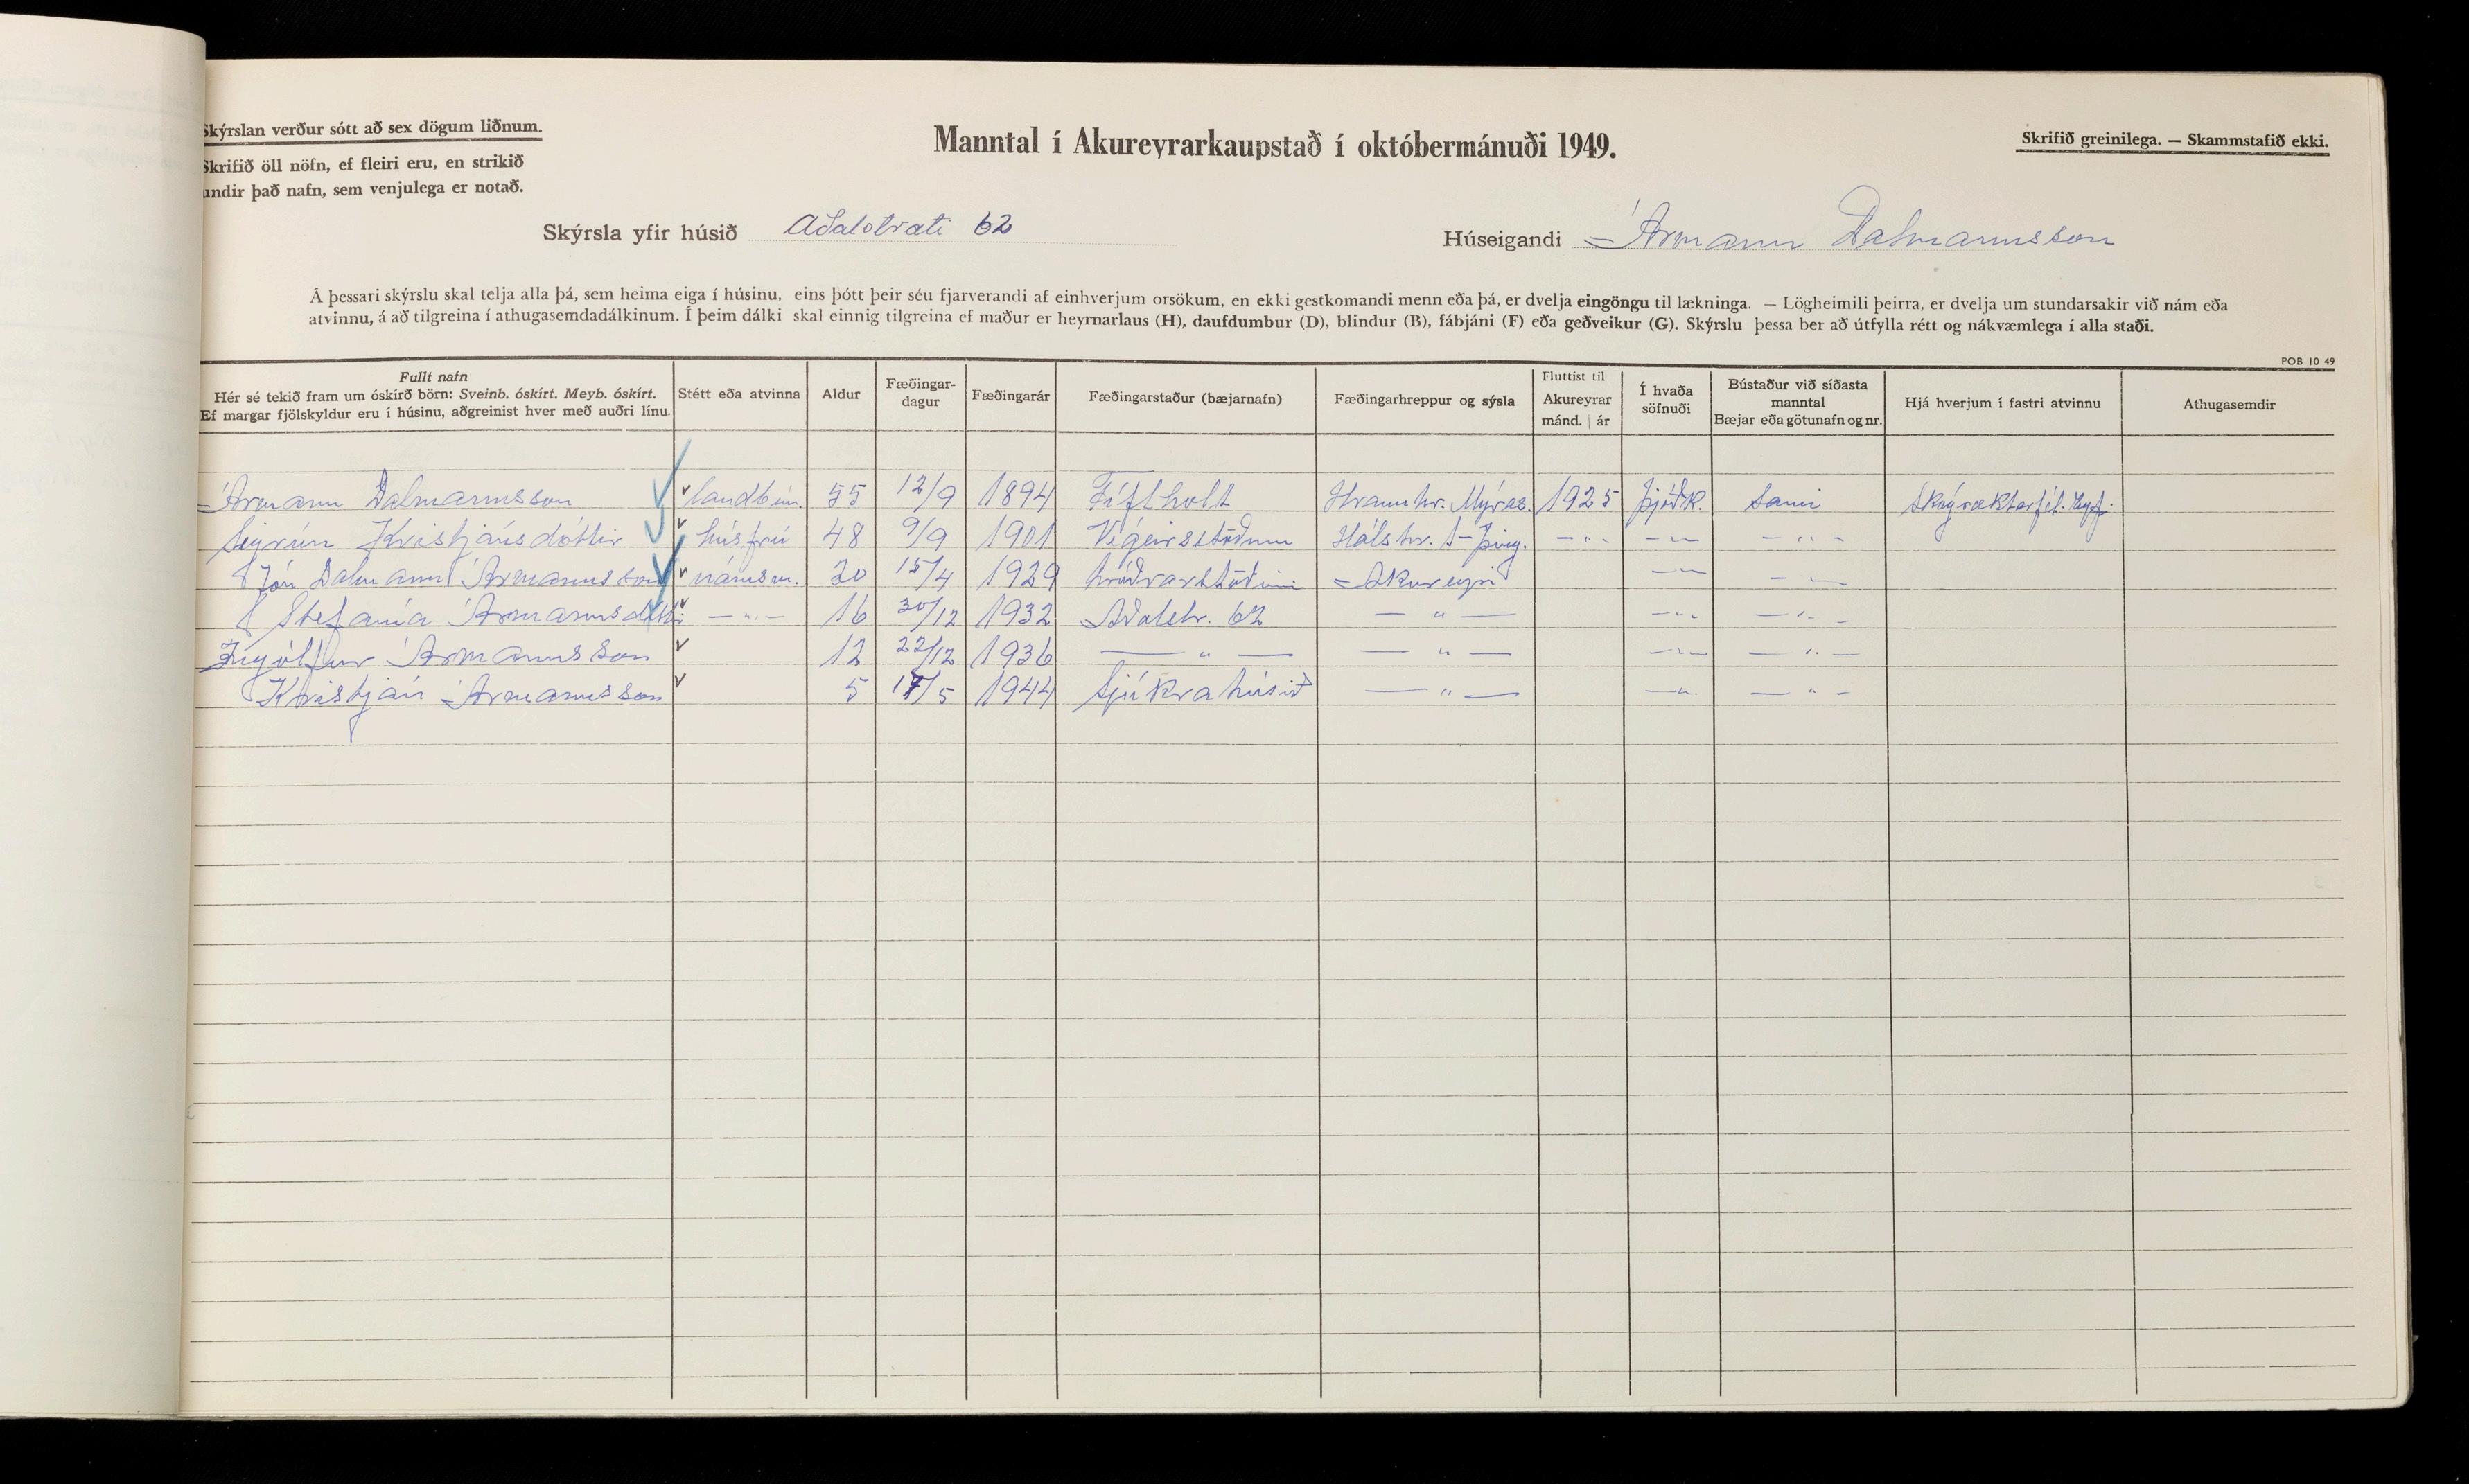 Skýrslan verður sótt að sex dögum liðnum.
Skrifið öll nöfn, ef fleiri eru, en strikið
undir það nafn, sem venjulega er notað.
Manntal í Akureyrarkaupstað í októbermánuði 1949.
Skrifið greinilega. — Skammstafið ekki.
Skýrsla yfir húsið Aðalstræti 62
Húseigandi Ármann Dalmannsson
Á þessari skýrslu skal telja alla þá, sem heima eiga í húsinu, eins þótt þeir séu fjarverandi af einhverjum orsökum, en ekki gestkomandi menn eða þá, er dvelja eingöngu til lækninga. — Lögheimili þeirra, er dvelja um stundarsakir við nám eða
atvinnu, á að tilgreina í athugasemdadálkinum. Í þeim dálki skal einnig tilgreina ef maður er heyrnarlaus (H), daufdumbur (D), blindur (B), fábjáni (F) eða geðveikur (G). Skýrslu þessa ber að útfylla rétt og nákvæmlega í alla staði.
POB 10 49
Fullt nafn
Hér sé tekið fram um óskírð börn: Sveinb. óskírt. Meyb. óskírt.
Ef margar fjölskyldur eru í húsinu, aðgreinist hver með auðri línu.
Stétt eða atvinna
Aldur
Fæðingar-
dagur
Fæðingarár
Fæðingarstaður (bæjarnafn)
Fæðingarhreppur og sýsla
Fluttist til
Akureyrar
mánd. | ár
Í hvaða
söfnuði
Bústaður við síðasta
manntal
Bæjar eða götunafn og nr.
Hjá hverjum í fastri atvinnu
Athugasemdir
Ármann Dalmannsson landbún. 55 12/9 1894 Fíflholt Hraunhr. Mýras. 1925 þjóðk. Sami Skógræktarfél. Eyf.
Sigrún Kristjánsdóttir húsfrú 48 9/9 1901 Végeirsstöðum Hálshr. S-Þing. — " — — " — — " —
Jón Dalmann Ármannsson námsm. 20 15/4 1929 Gróðrarstöðinni Akureyri — " — — " —
Stefanía Ármannsdóttir — " — 16 30/12 1932 Aðalstr. 62 — " — — " — — " —
Ingólfur Ármannsson 12 22/12 1936 — " — — " — — " — — " —
Kristján Ármannsson 5 17/5 1944 Sjúkrahúsið — " — — " — — " —